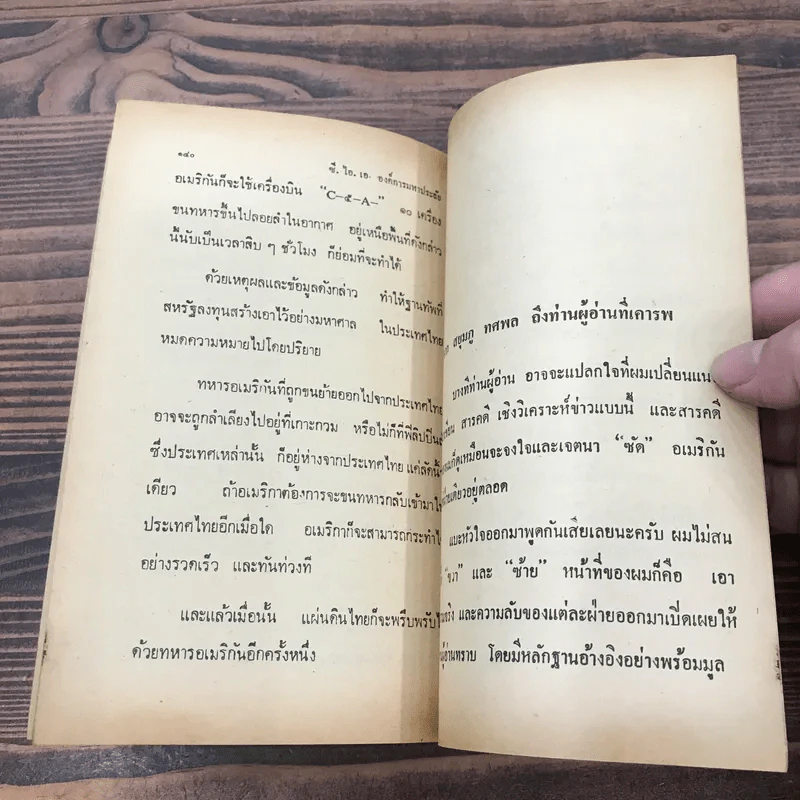 ๑๔๐
ซี. ไอ. เอ. องค์การมหาประลัย
อเมริกันก็จะใช้เครื่องบิน “C–๕–A–” ๑๐ เครื่อง
ขนทหารขึ้นไปลอยลำในอากาศ อยู่เหนือพื้นที่ดังกล่าว
นี้นับเป็นเวลาสิบ ๆ ชั่วโมง ก็ย่อมที่จะทำได้
ด้วยเหตุผลและข้อมูลดังกล่าว ทำให้ฐานทัพที่
สหรัฐลงทุนสร้างเอาไว้อย่างมหาศาล ในประเทศไทย
หมดความหมายไปโดยปริยาย
ทหารอเมริกันที่ถูกขนย้ายออกไปจากประเทศไทย
อาจจะถูกลำเลียงไปอยู่ที่เกาะกวม หรือไม่ก็ที่ฟิลิปปินส์
ซึ่งประเทศเหล่านั้น ก็อยู่ห่างจากประเทศไทย แค่ลัดนิ้ว
เดียว ถ้าอเมริกาต้องการจะขนทหารกลับเข้ามาใ
ประเทศไทยอีกเมื่อใด อเมริกาก็จะสามารถกระทำได้
อย่างรวดเร็ว และทันท่วงที
และแล้วเมื่อนั้น แผ่นดินไทยก็จะพรึบพรับไ
ด้วยทหารอเมริกันอีกครั้งหนึ่ง
สยุมภู ทศพล ถึงท่านผู้อ่านที่เคารพ
บางทีท่านผู้อ่าน อาจจะแปลกใจที่ผมเปลี่ยนแน
เขียน สารคดี เชิงวิเคราะห์ข่าวแบบนี้ และสารคดี
ผมก็ดูเหมือนจะจงใจและเจตนา “ซัด” อเมริกัน
ฝ่ายเดียวอยู่ตลอด
แบะหัวใจออกมาพูดกันเสียเลยนะครับ ผมไม่สน
“ขวา” และ “ซ้าย” หน้าที่ของผมก็คือ เอา
จริง และความลับของแต่ละฝ่ายออกมาเปิดเผยให้
ผู้อ่านทราบ โดยมีหลักฐานอ้างอิงอย่างพร้อมมูล